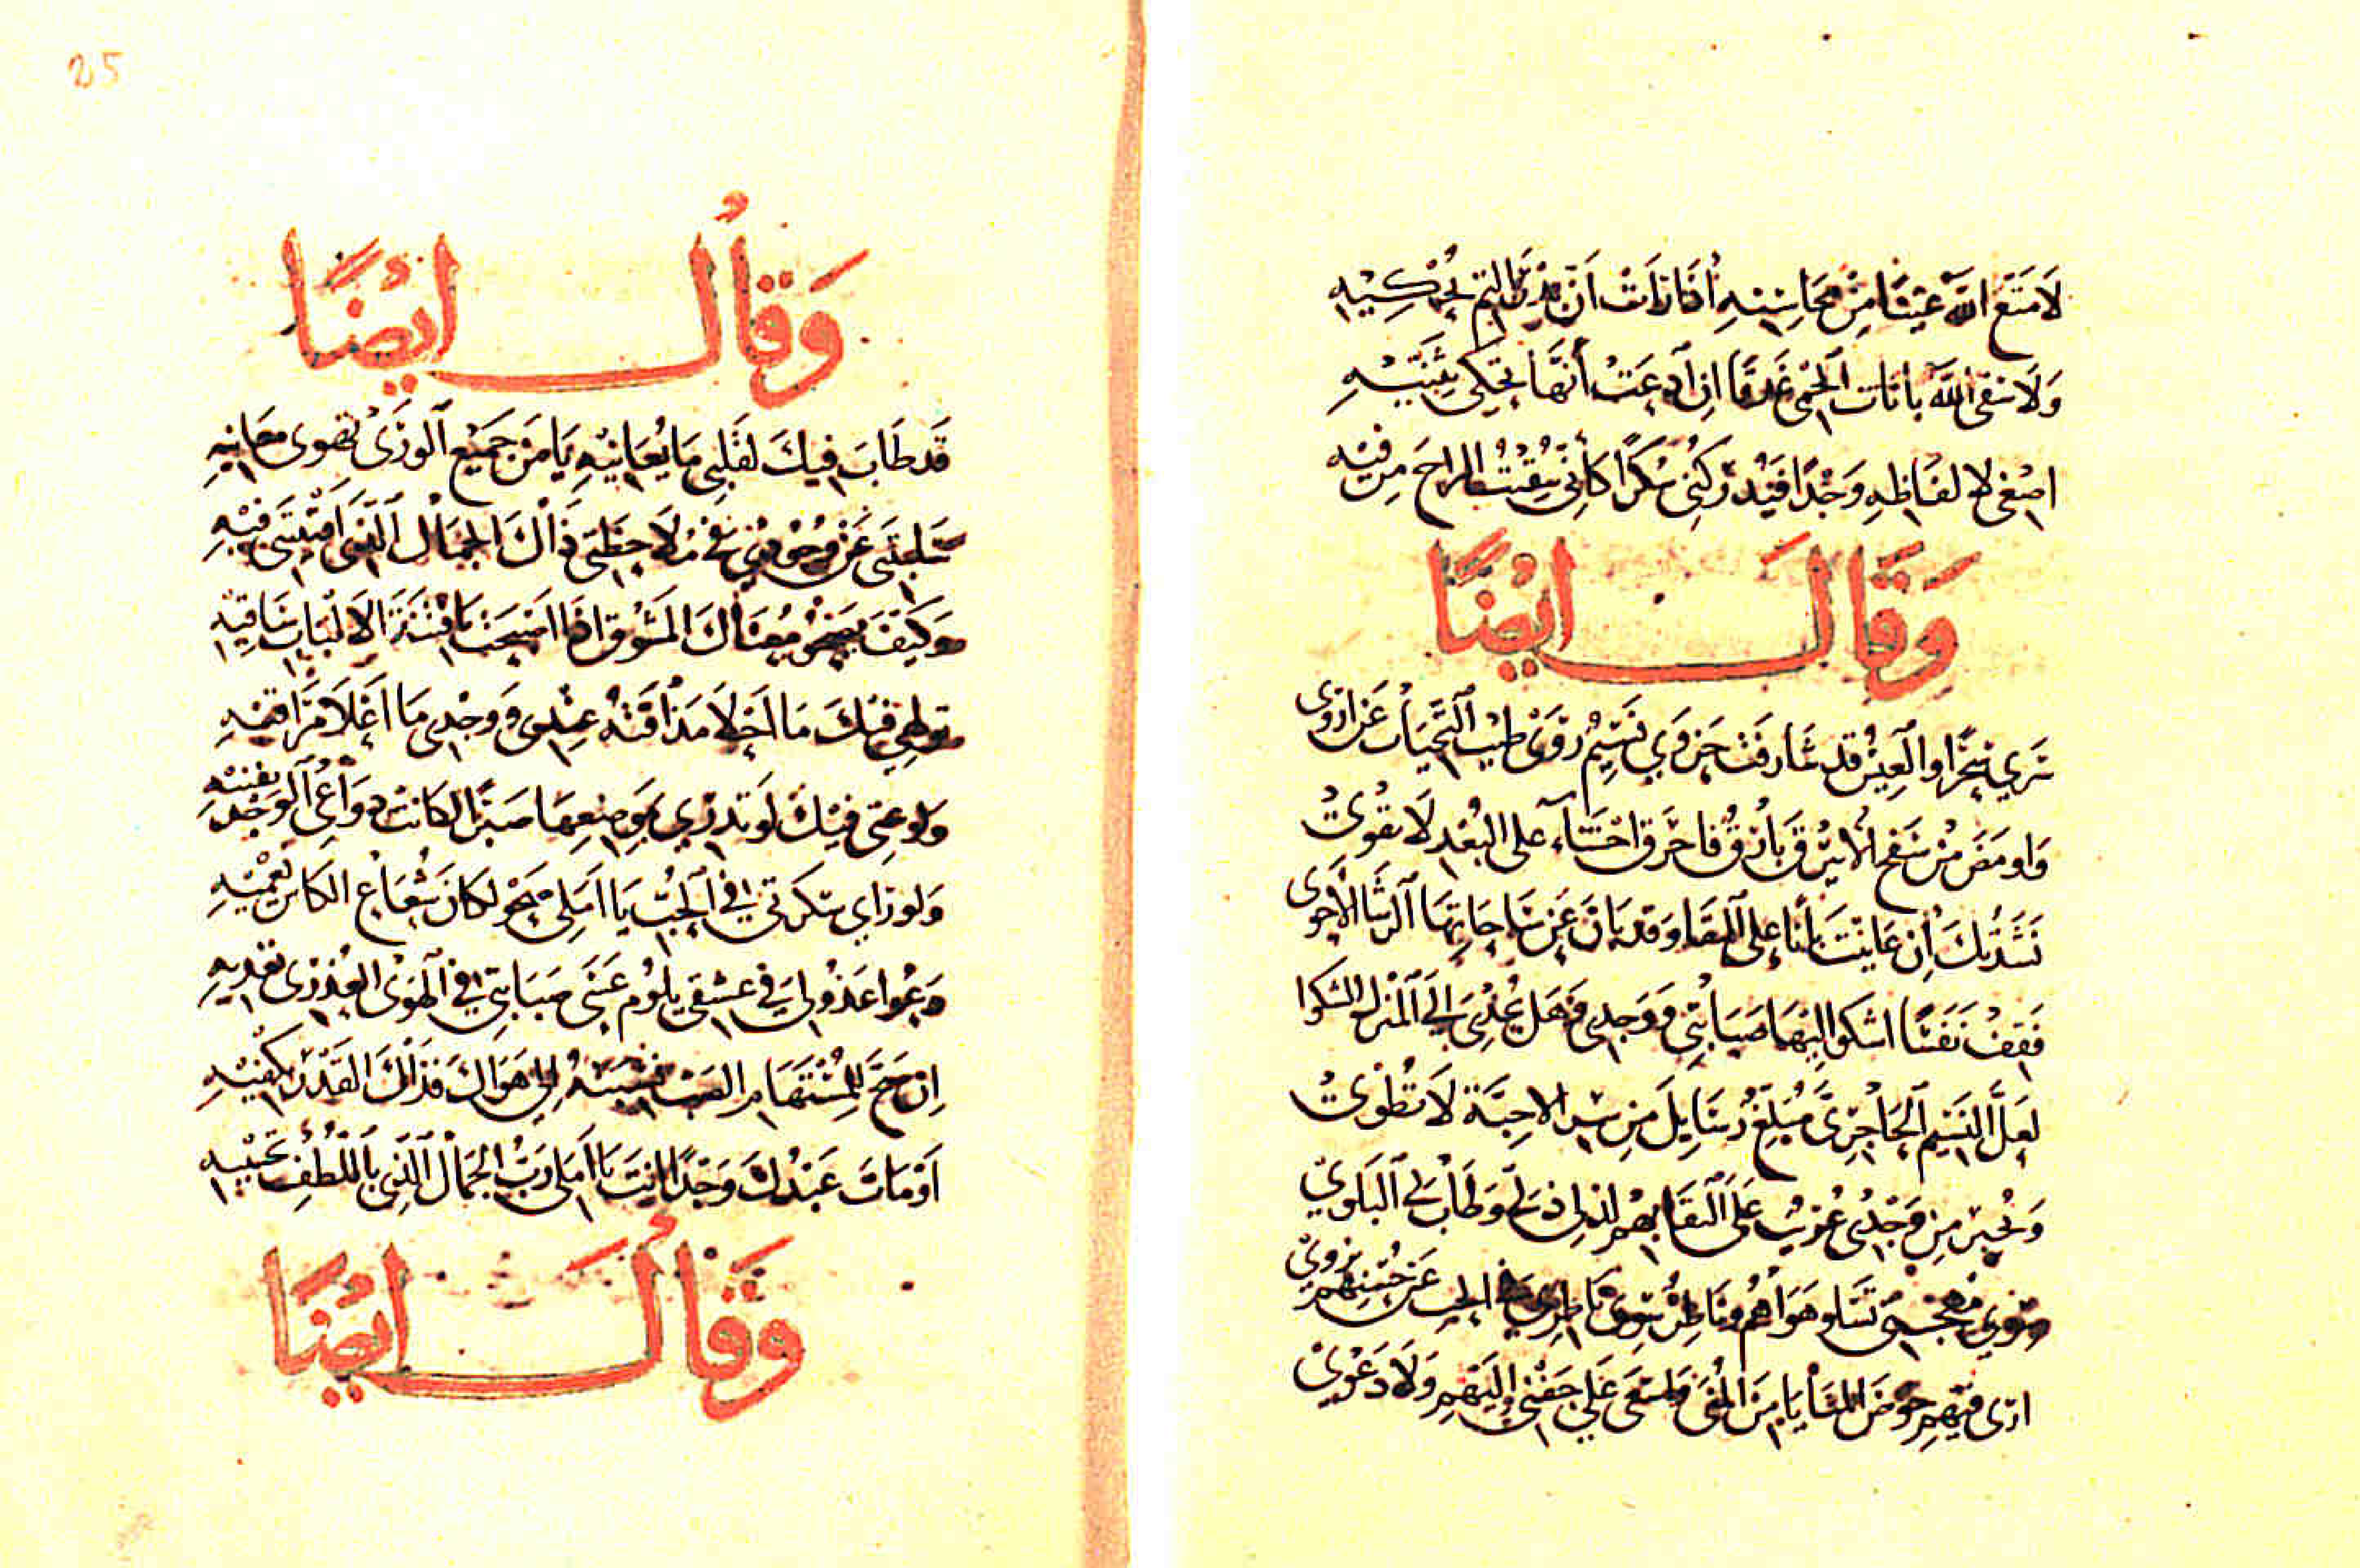 لا متع الله عينا من محاسنه اذا رات ان بدر التم يحكيه
ولا سقى الله بانات الحمى غدقا ان ادعت انها تحكى تثنيه
اصغى لالفاظه وجدا فيدركنى سكرا كانى سقيت الراح من فيه
وقال ايضا
سرى سحرا والعيس قد شارفت حزوى نسيم روى طيب التحيات عن اروى
واومض من سفح الابيرق بارق فاحرق احشاء على البعد لا تقوى
نشدتك ان عاينت بانا على النقا وقد بان عن ساحاتها الرشا الاحوى
فقف نفسا اشكو اليها صبابتى ووجدى وهل يجدى الى المنزل الشكوا
لعل النسيم الحاجرى مبلغ رسايل من سر الاحبة لا تطوى
ونخبر من وجدى عريب على النقا بهم لذ لى ذلى وطاب لى البلوى
سوى مهجتى تسلو هواهم وناظر سوى ناظرى فى الحب عن حسنهم يزوى
ارى فيهم حوض المنايا من المنى واسعى على جفنى اليهم ولا دعوى
25
وقال ايضا
قد طاب فيك لقلبى ما يعانيه يا من جميع الورى تهوى معانيه
سلبتنى عن وجودى فى ملاحظتى ذاك الجمال الذى افنيتنى فيه
وكيف يصحو معناك المشوق اذا اصبحت يا فتنة الالباب ساقيه
فيك ما احلا مذاقته عندى ووجدى ما اغلا مراقيه
ولوعتى فيك لو تدرى بموضعها صبرا لكانت دواعى الوجد تفنيه
ولو راى سكرتى فى الحب يا املى صحو لكان شعاع الكاس يعميه
دعوا عذولى فى عشقى يلوم عسى صبابتى فى الهوى العذرى تعديه
ان صح للمستهام الصب نسبته الى هواك فذاك القدر يكفيه
او مات عبدك وجدا انت يا املى رب الجمال الذى باللطف تحييه
وقال ايضا